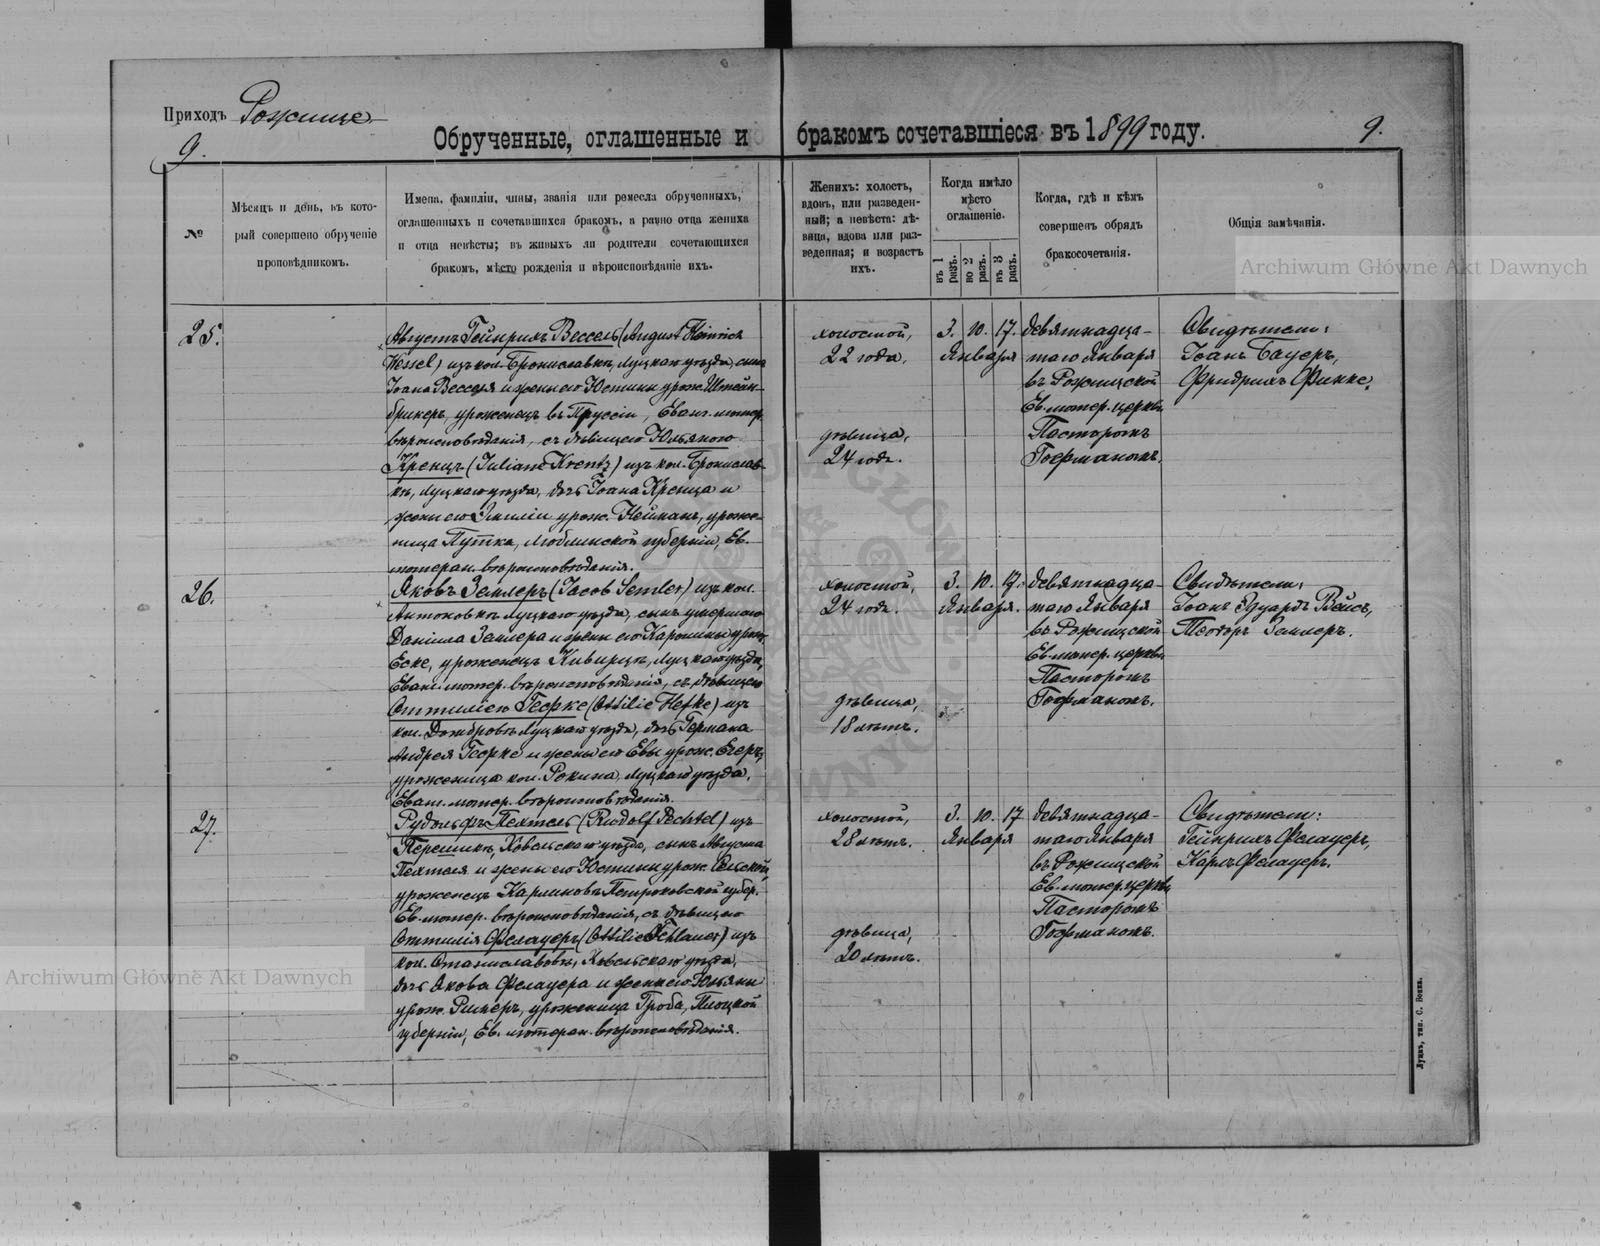 Приходъ Рожище
9. 9.
Обрученные, оглашенные и бракомъ сочетавшіеся въ 1899 году.
№
Мѣсяцъ и день, въ кото-
рый совершено обрученіе
проповѣдникомъ.
Имена, фамиліи, чины, званія или ремесла обрученныхъ,
оглашенныхъ и сочетавшихся бракомъ, а равно отца жениха
и отца невѣсты; въ живыхъ ли родители сочетающихся
бракомъ, мѣсто рожденія и вѣроисповѣданіе ихъ.
Женихъ: холостъ,
вдовъ, или разведен-
ный; а невѣста: дѣ-
вица, вдова или раз-
веденная; и возрастъ
ихъ.
Когда имѣло
мѣсто
оглашеніе.
въ 1 разъ.
во 2 разъ.
въ 3 разъ.
Когда, гдѣ и кѣмъ
совершенъ обрядъ
бракосочетанія.
Общія замѣчанія.
Archiwum Główne Akt Dawnych
25.
Августъ Гейнрихъ Вессель (August Heinrich
Wessel) изъ кол. Брониславкѣ, Луцкаго уѣзда, сынъ
Іоана Весселя и жены его Юстины урож. Штейн-
брикеръ, уроженецъ въ Пруссіи, Еванг. лютер.
вѣроисповѣданія, съ дѣвицею Юльяною
Кренцъ (Juliane Krentz) изъ кол. Бронислав-
кѣ, Луцкаго уѣзда, дочь Іоана Кренца и
жены его Эмиліи урож. Нейманъ, уроже-
ница Путка, Люблинской губерніи, Ев.
лютеран. вѣроисповѣданія.
холостой,
22 года.
дѣвица,
24 года.
3. 10. 17.
Января
девятнадца-
таго Января
въ Рожищской
Ев. лютер. церкви
Пасторомъ
Гофманомъ.
Свидѣтели:
Іоанъ Бауеръ,
Фридрихъ Финке.
26.
Яковъ Землеръ (Jacob Semler) изъ кол.
Антоновкѣ Луцкаго уѣзда, сынъ умершаго
Даніила Землера и жены его Каролины урож.
Еске, уроженецъ Киверцъ, Луцкаго уѣзда,
Еванг. лютер. вѣроисповѣданія, съ дѣвицею
Оттиліею Гефке (Ottilie Hefke) изъ
кол. Домбровѣ Луцкаго уѣзда, дочь Германа
Андрея Гефке и жены его Евы урож. Егеръ,
уроженица кол. Рокина, Луцкаго уѣзда,
Еванг. лютер. вѣроисповѣданія.
холостой,
24 года.
дѣвица,
18 лѣтъ.
3. 10. 17.
Января.
девятнадца-
таго Января
въ Рожищской
Ев. лютер. церкви
Пасторомъ
Гофманомъ.
Свидѣтели:
Іоанъ Эдуардъ Вейсъ,
Теодоръ Землеръ.
27.
Рудольфъ Пехтель (Rudolf Pechtel) изъ
Ковельскаго уѣзда, сынъ Августа
Пехтеля и жены его Юстины урож.
уроженецъ Карлиновъ Петроковской губер.
Ев. лютер. вѣроисповѣданія, съ дѣвицею
Оттилія Фелауеръ (Ottilie Fehlauer) изъ
кол. Станиславовкѣ, Ковельскаго уѣзда,
дочь Якова Фелауера и жены его Юльяны
урож. уроженица Гроба, Плоцкой
губерніи, Ев. лютеран. вѣроисповѣданія.
холостой,
28 лѣтъ.
дѣвица,
20 лѣтъ.
3. 10. 17
Января
девятнадца-
таго Января
въ Рожищской
Ев. лютер. церкви
Пасторомъ
Гофманомъ.
Свидѣтели:
Гейнрихъ Фелауеръ,
Карлъ Фелауеръ.
Archiwum Główne Akt Dawnych
Луцкъ, тип. С. Бокка.